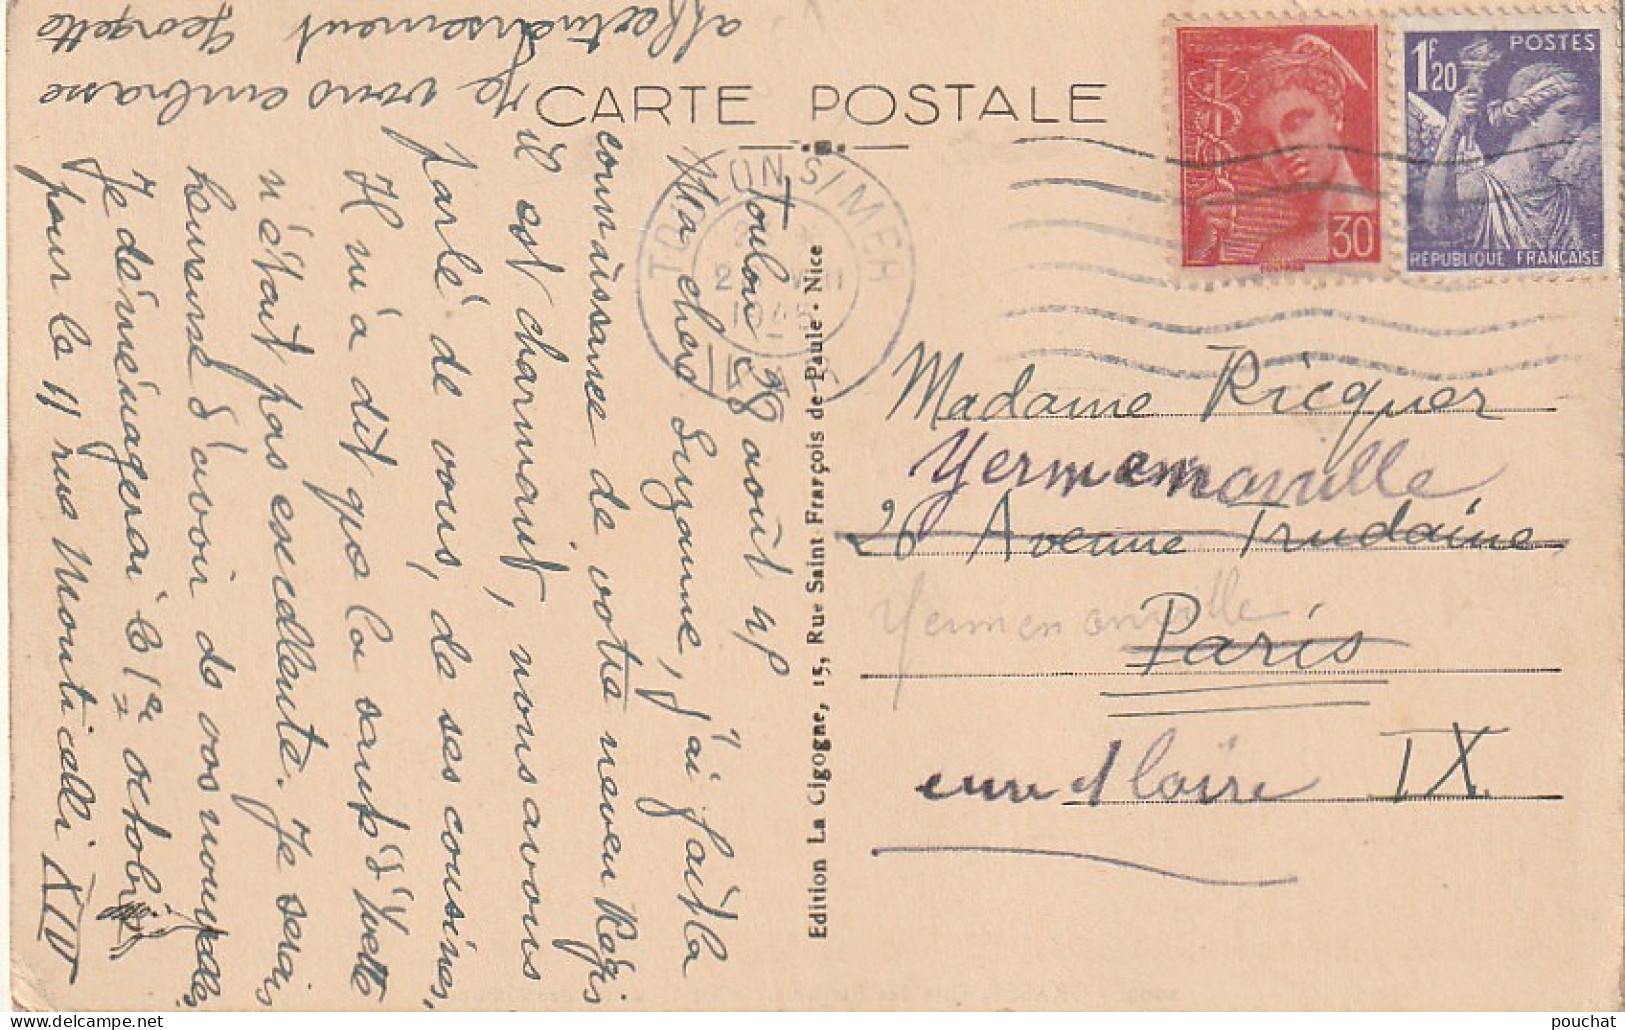 CARTE POSTALE
TOULON S/MER
1945
FRANÇAISE
30
1F20
POSTES
RÉPUBLIQUE FRANÇAISE
Toulon ce 28 août 45
Ma chère Suzanne, j'ai fait la
connaissance de votre neveu Régis
il est charmant, nous avons
parlé de vous, de ses cousines,
Il m'a dit que la santé d'Yvette
n'était pas excellente. Je serais
heureuse d'avoir de vos nouvelles,
Je déménagerai le 1er octobre
pour le 11 rue Monticelli XIV
Je vous embrasse
affectueusement Georgette
Edition La Cigogne, 15, Rue Saint François de Paule - Nice
Madame Ricquer
Yermenonville
26 Avenue Trudaine
Yermenonville
Paris
eure et loire IX.
pouchat